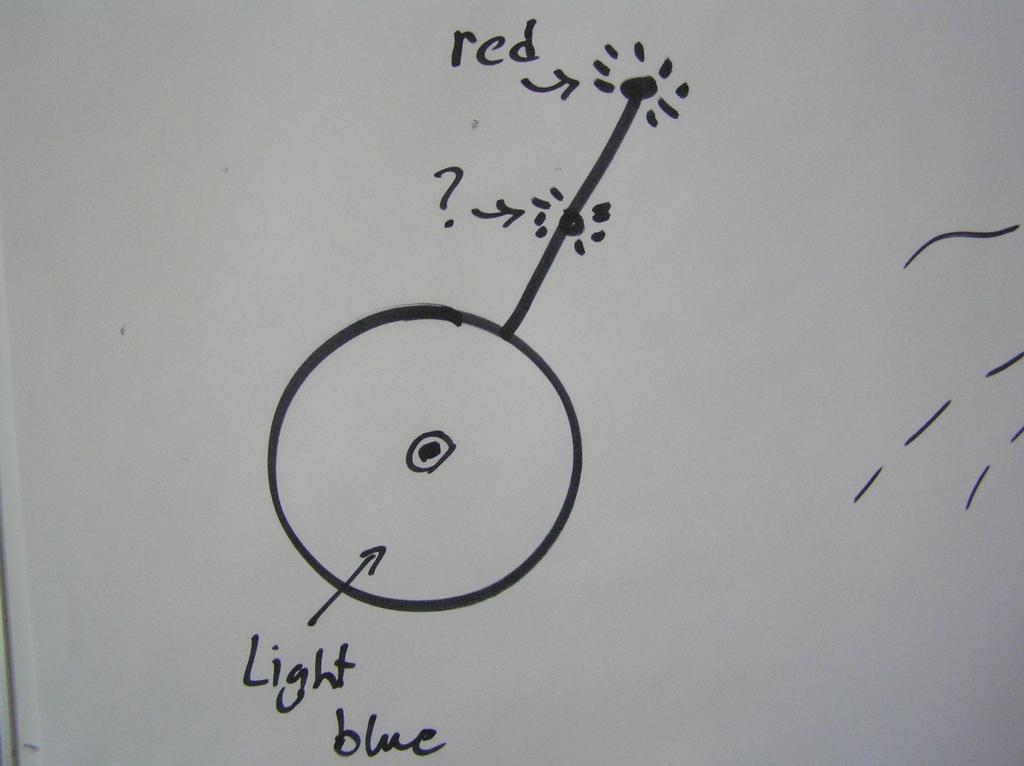 red
?
Light
blue